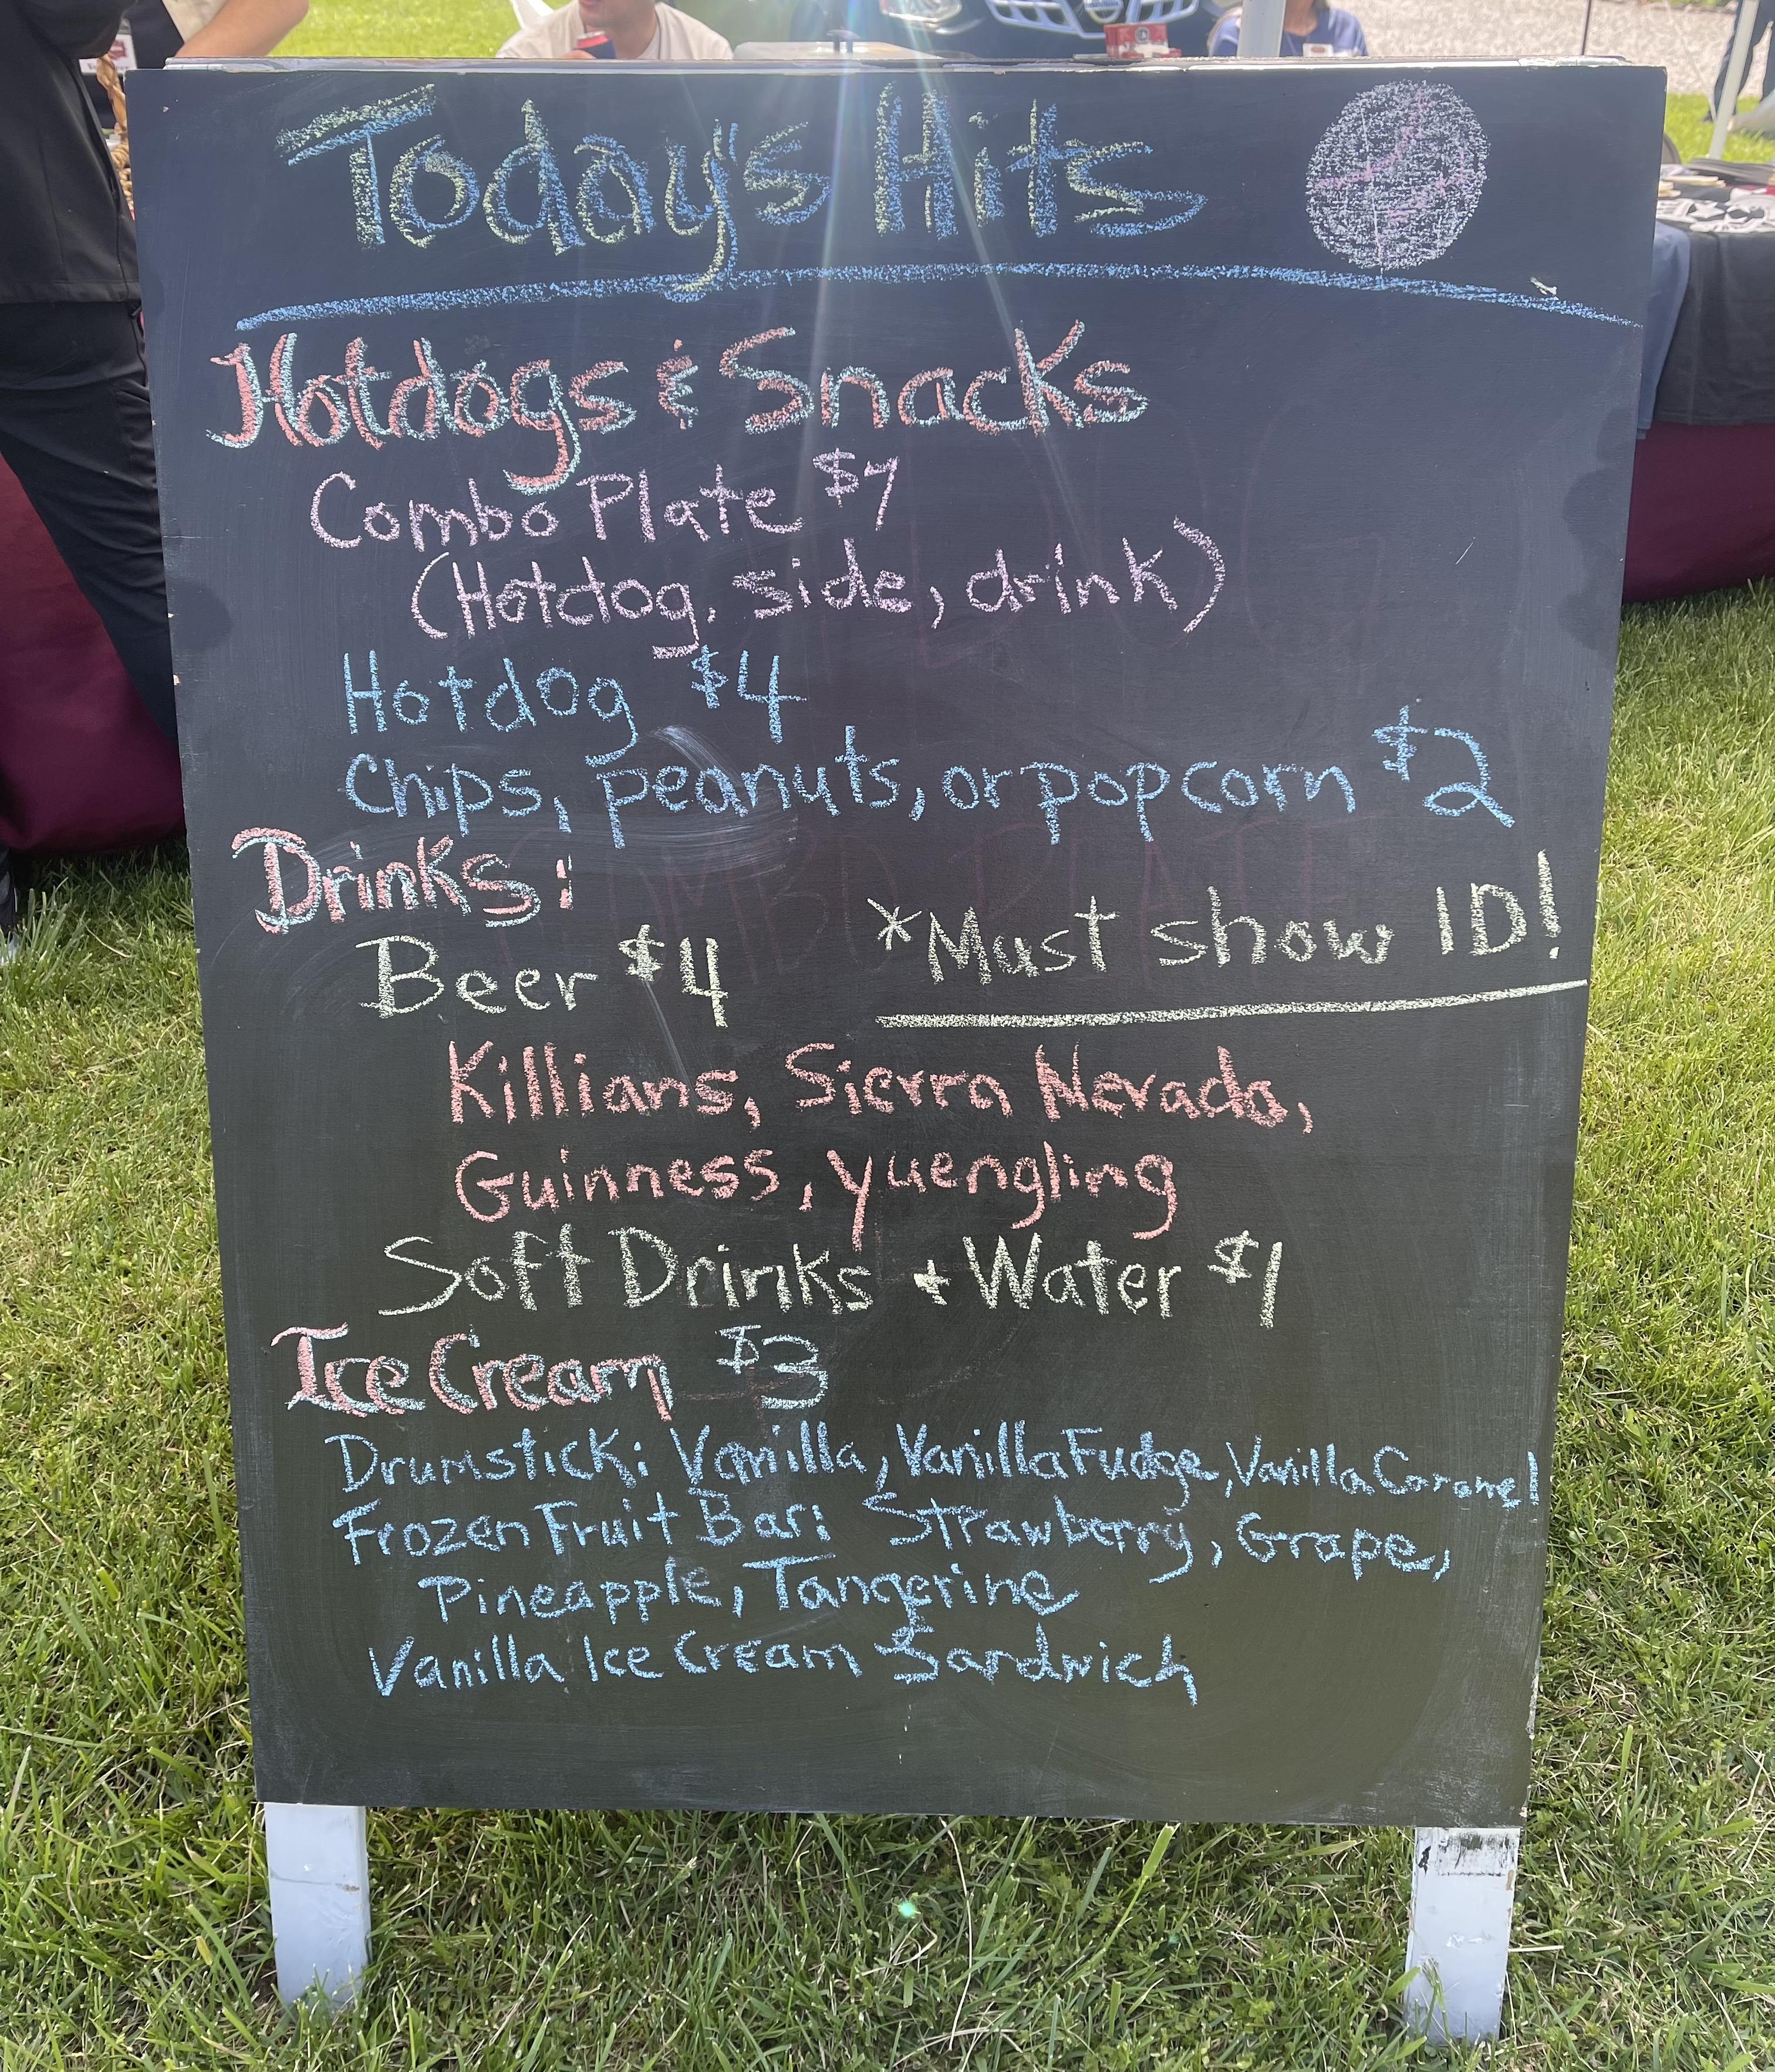 Today's Hits
Hotdogs & Snacks
Combo Plate $7
(Hotdog, side, drink)
Hotdog $4
Chips, peanuts, or popcorn $2
Drinks:
Beer $4 *Must show ID!
Killians, Sierra Nevada,
Guinness, Yuengling
Soft Drinks + Water $1
Ice Cream $3
Drumstick: Vanilla, Vanilla Fudge, Vanilla Caramel
Frozen Fruit Bar: Strawberry, Grape,
Pineapple, Tangerine
Vanilla Ice Cream Sandwich